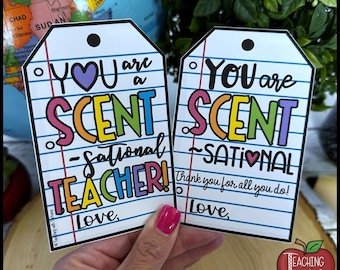 YOU are
a
SCENT
-sational
TEACHER!
Love,
YOU are
SCENT
-SATIONAL
Thank you for all you do!
Love,
TEACHING
SUDAN